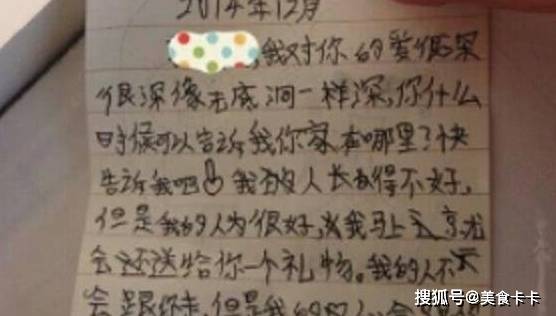 2014年12月
,我对你的爱很深
很深像无底洞一样深,你什么
时候可以告诉我你家在哪里了快
告诉我吧 我 人长 得不好,
但是我的人为很好, 我马上
会还送给你一个礼物。我的人不
会跟你走,但是我的 会
搜狐号@美食卡卡